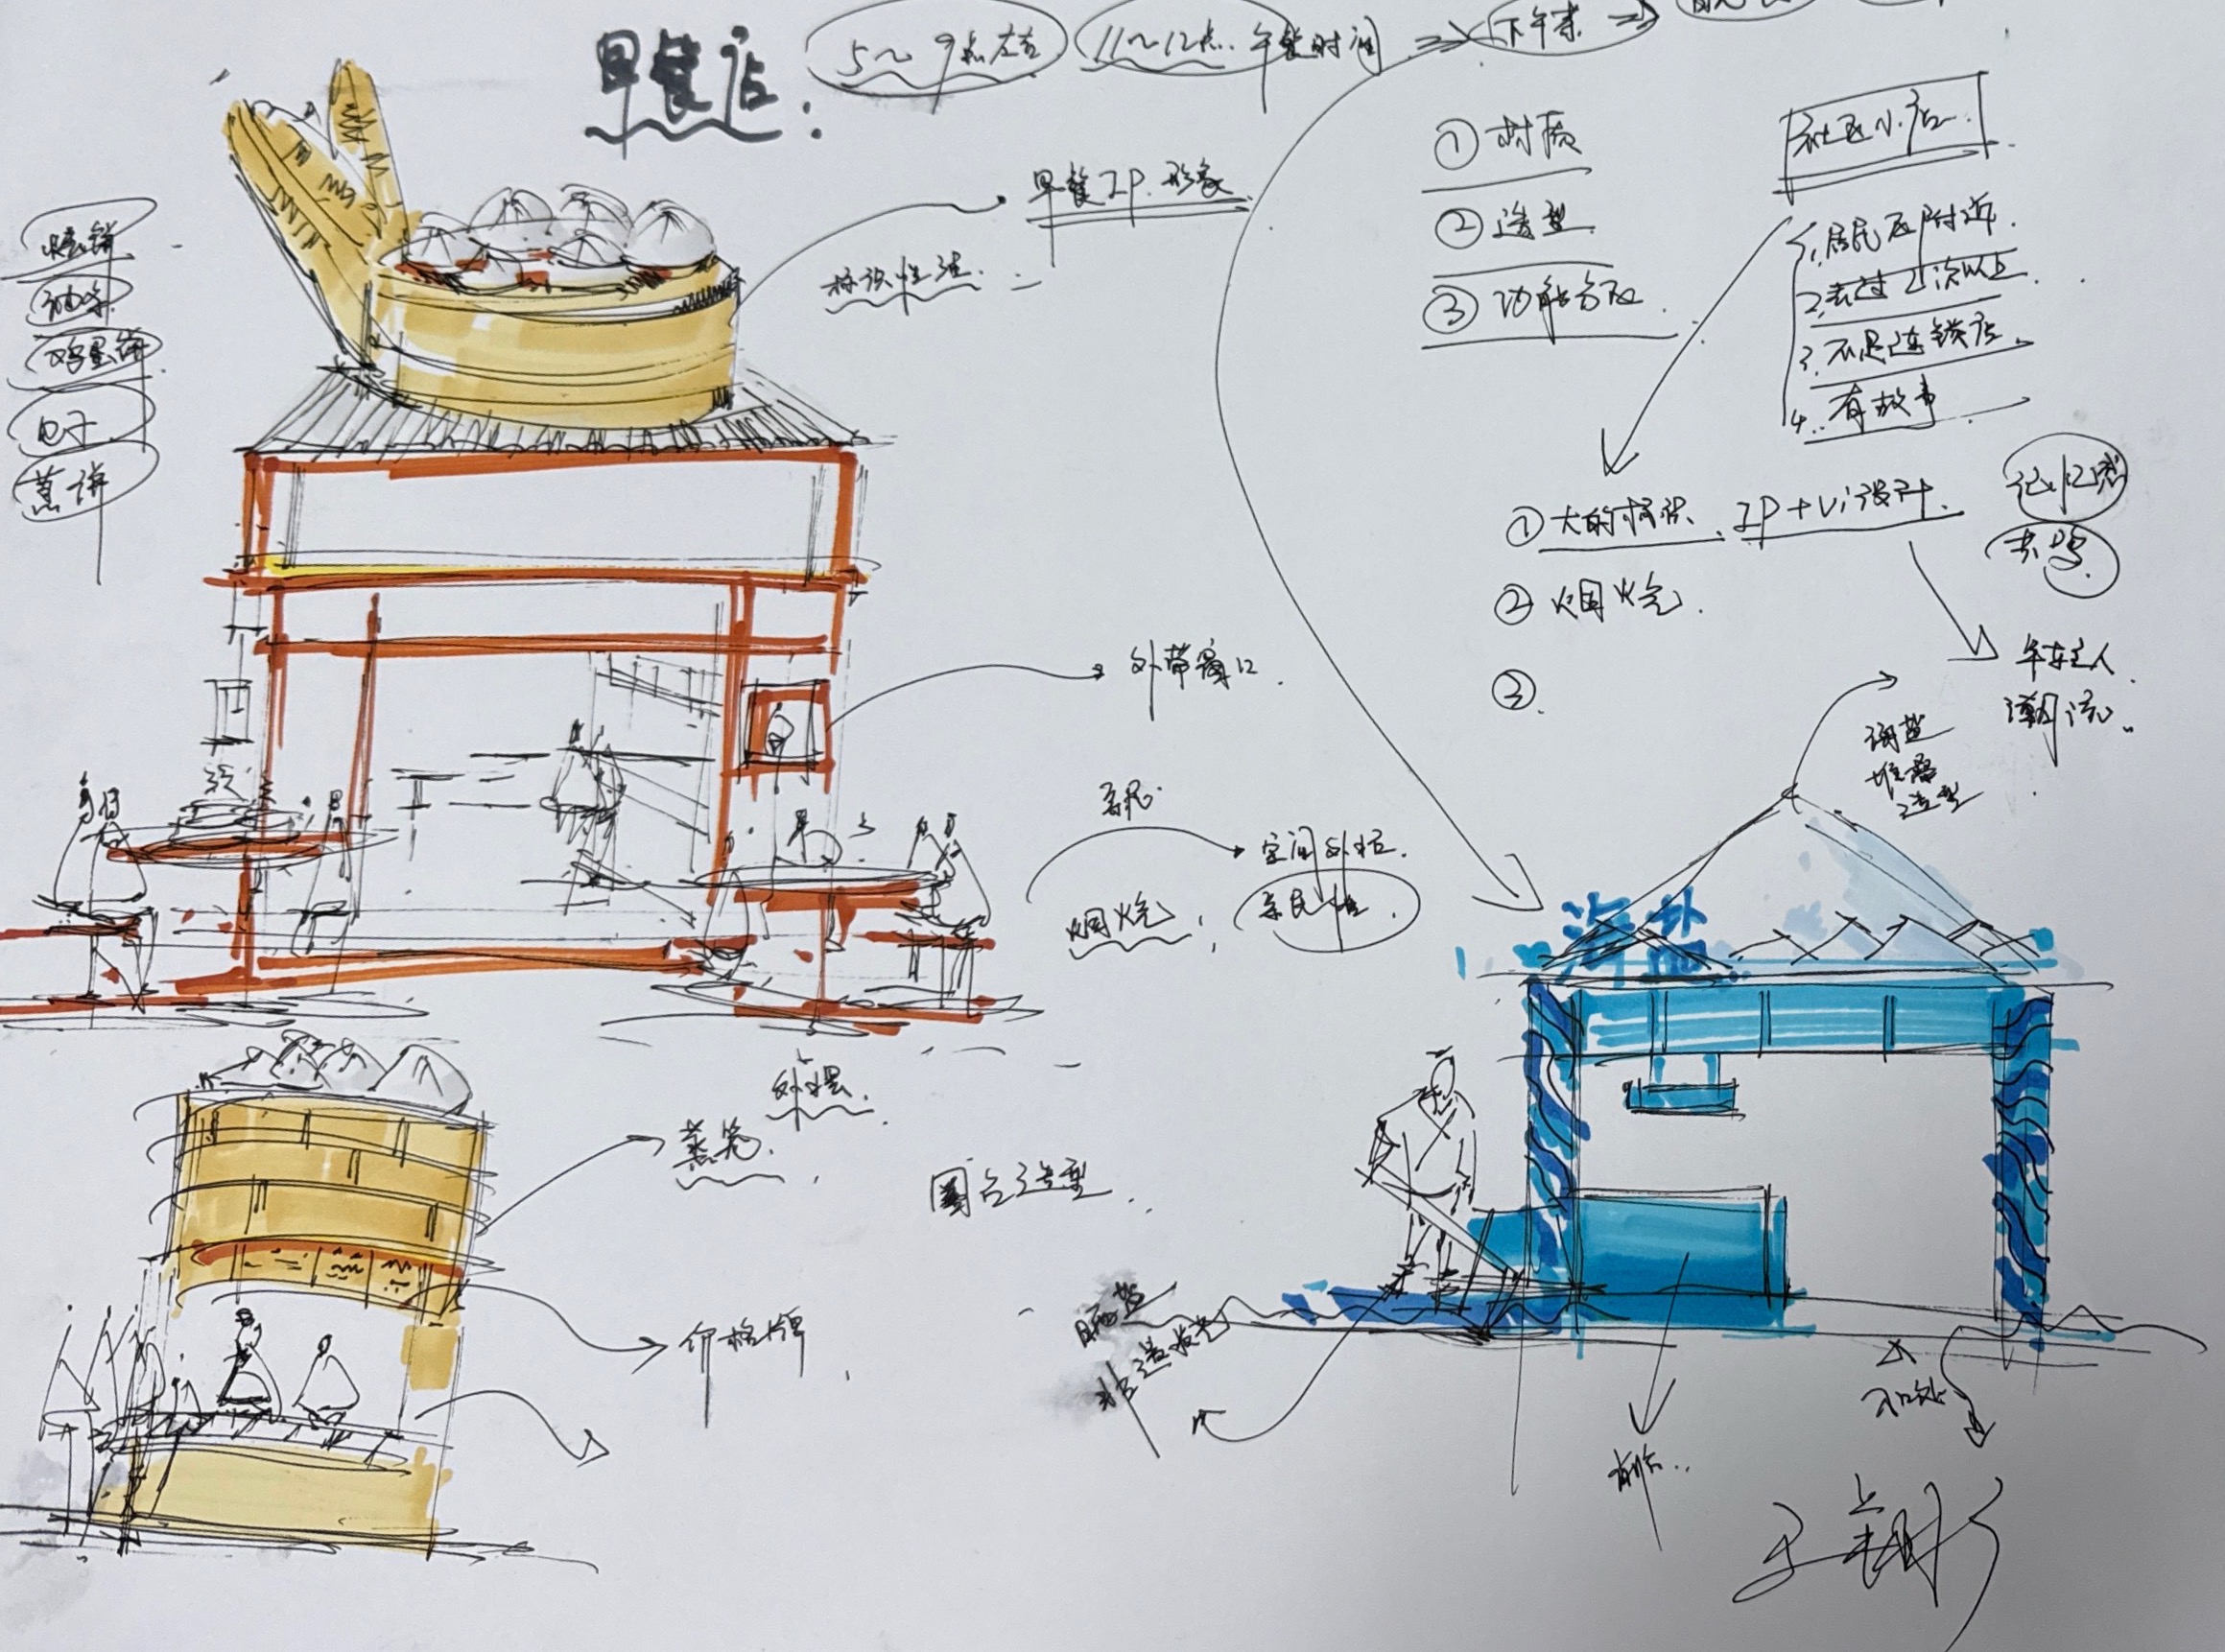 早餐店:
5~9点左右
11~12点.午餐时间
下午茶
烧饼
油条
鸡蛋饼
包子
煎饼
标识性强.
早餐IP.形象
①材质
②造型
③功能分区.
社区小店.
1.居民区附近.
2.去过2次以上
3.不是连锁店.
4.有故事
①大的标识.IP+Vi设计.
②烟火气.
③.
记忆感
共鸣.
年轻人.
潮流.
外带窗口.
亲民.
空间外拉.
烟火气,
亲民性.
外摆.
海盐
堆叠
造型
海盐
蒸笼.
圆台造型.
价格牌
晒盐
非遗技艺
前台..
入口处